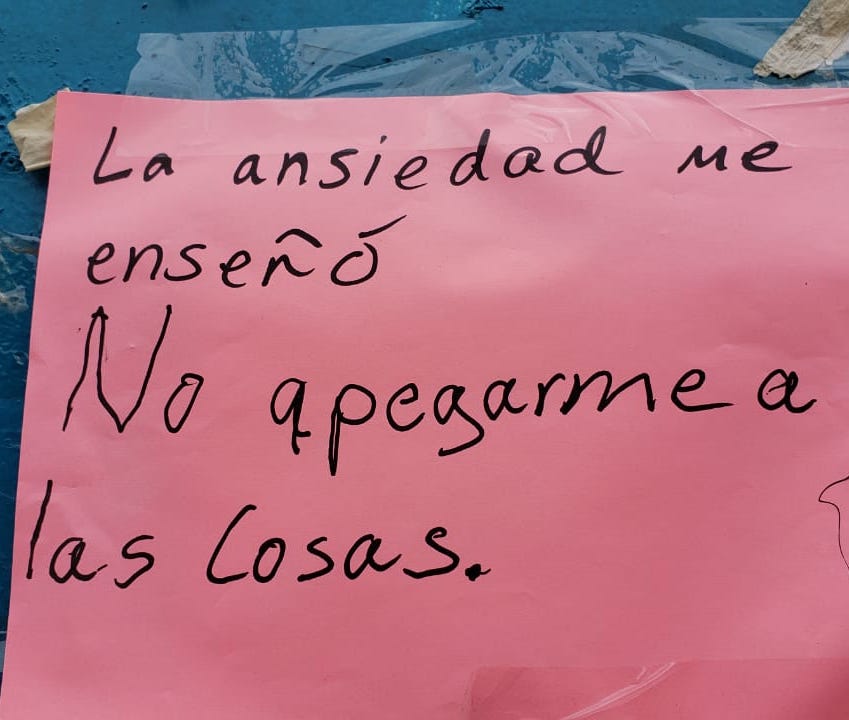 La ansiedad me
enseñó
No apegarme a
las Cosas.